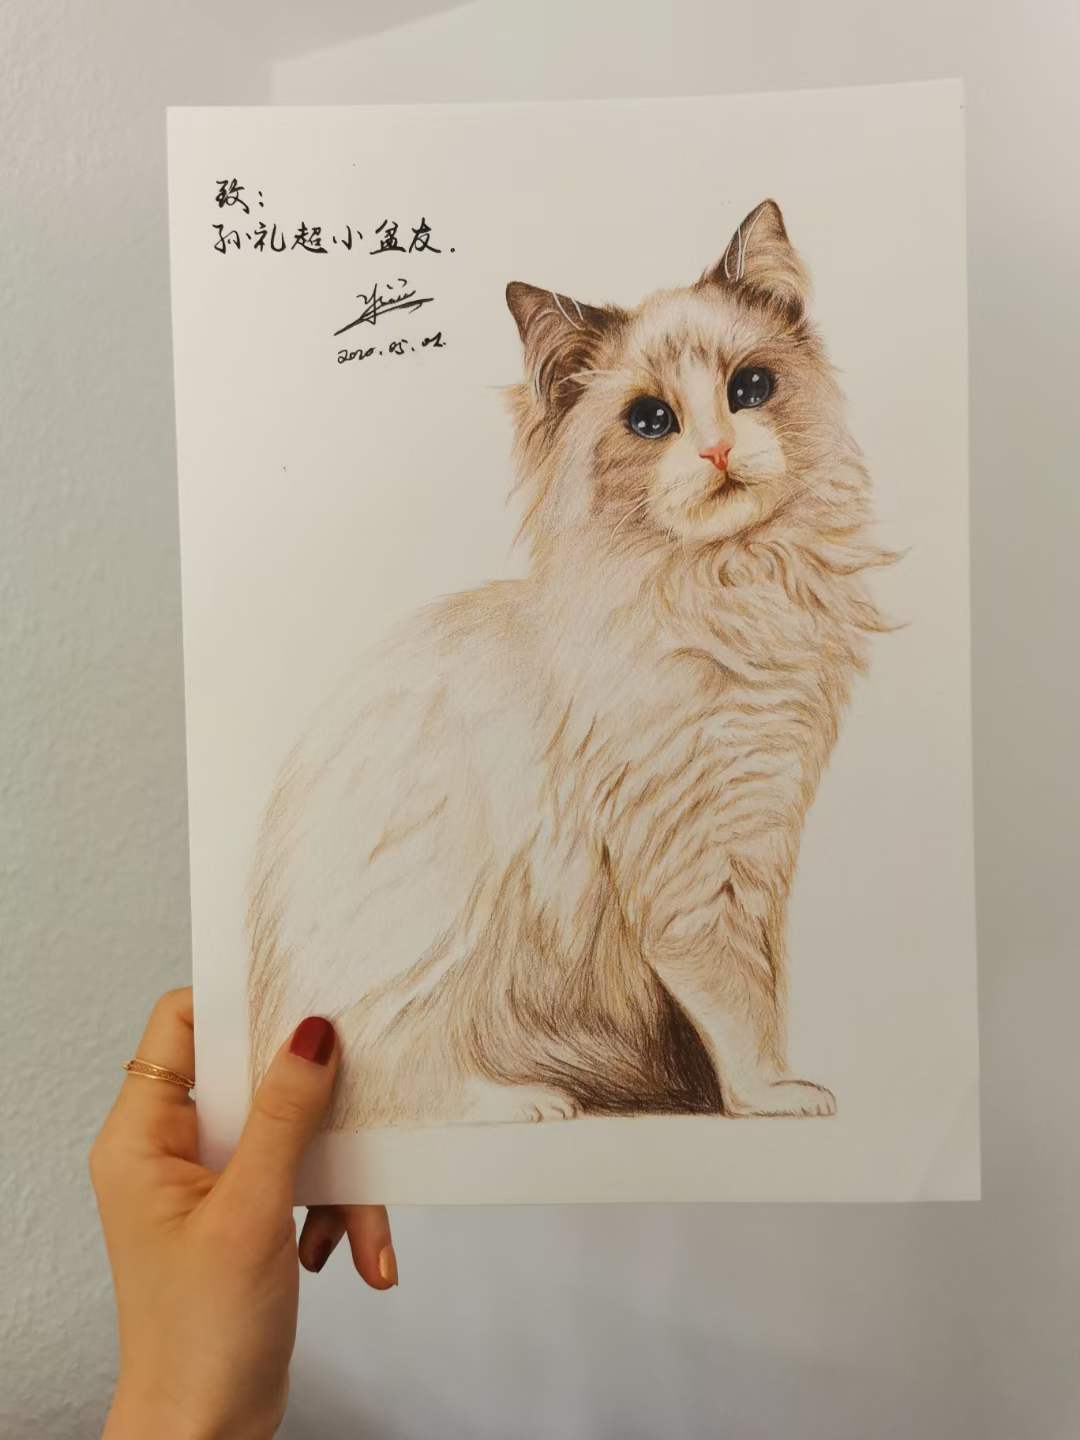 致：
孙礼超小盆友.
2020.05.02.